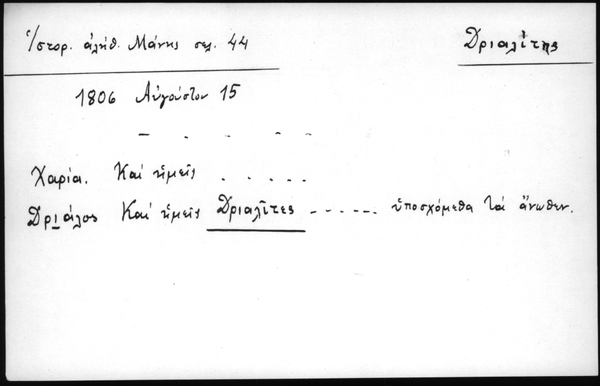 Ἱστορ. ἀλήθ. Μάνης σελ. 44
Δριαλίτης
1806 Αὐγούστου 15
– - - - -
Χαρία. Καί ἡμεῖς . . . . .
Δριάλος Καί ἡμεῖς Δριαλῖτες ------ ὑποσχόμεθα τά ἄνωθεν.